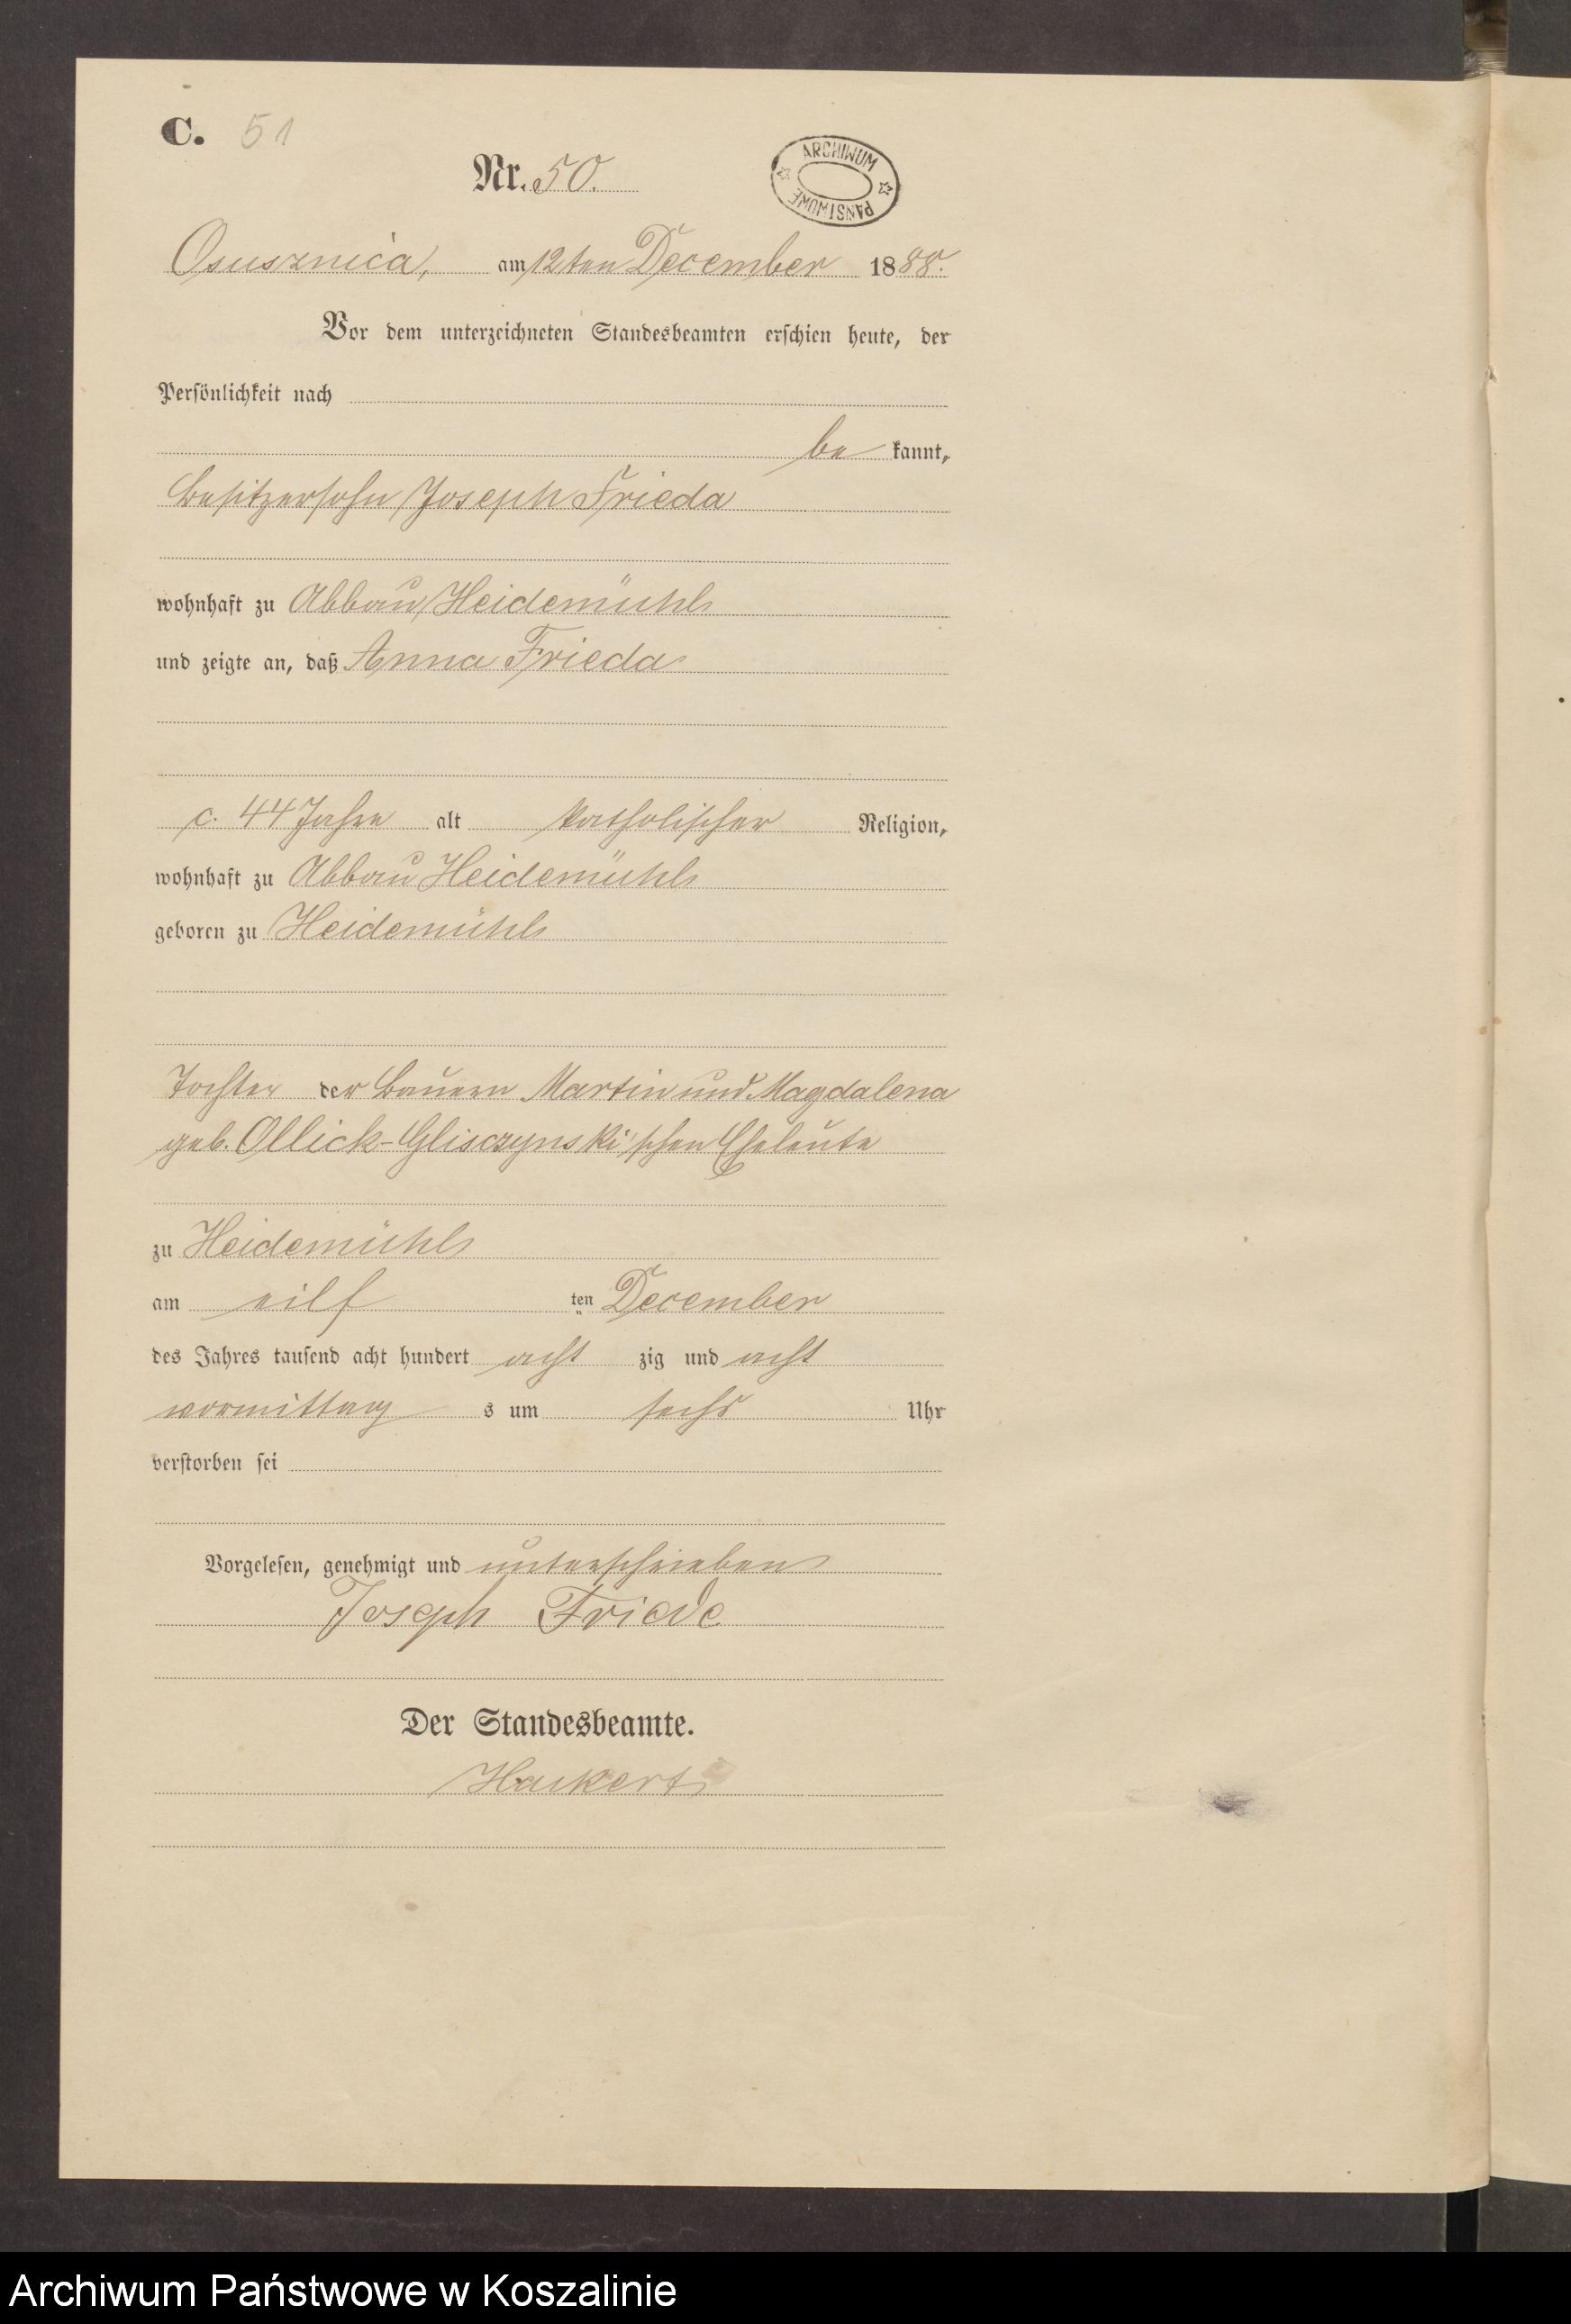 C. 51
Nr. 50.
ARCHIWUM PAŃSTWOWE
Osusznica, am 12ten December 1888.
Vor dem unterzeichneten Standesbeamten erschien heute, der
Persönlichkeit nach
be kannt,
Besitzersohn Joseph Frieda
wohnhaft zu Abbau Heidemühl
und zeigte an, daß Anna Frieda
c. 44 Jahre alt katholischer Religion,
wohnhaft zu Abbau Heidemühl
geboren zu Heidemühl
Tochter der Bauern Martin und Magdalena
geb. Ollick-Glisczynski'schen Eheleute
zu Heidemühl
am eilf ten December
des Jahres tausend acht hundert acht zig und acht
vormittag s um sechs Uhr
verstorben sei
Vorgelesen, genehmigt und unterschrieben
Joseph Friede
Der Standesbeamte.
Archiwum Państwowe w Koszalinie